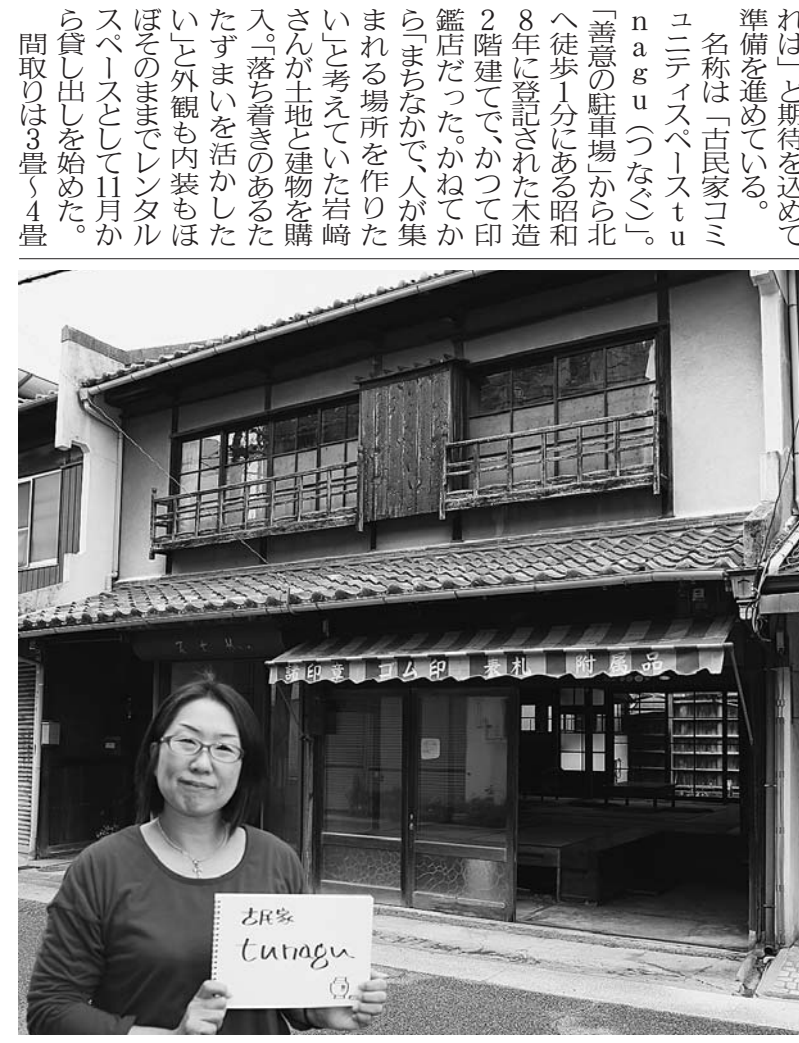 れは」と期待を込めて
準備を進めている。
名称は「古民家コミ
ュニティスペースtu
nagu（つなぐ）」。
「善意の駐車場」から北
へ徒歩1分にある昭和
8年に登記された木造
2階建てで、かつて印
鑑店だった。かねてか
ら「まちなかで、人が集
まれる場所を作りた
い」と考えていた岩﨑
さんが土地と建物を購
入。「落ち着きのあるた
たずまいを活かした
い」と外観も内装もほ
ぼそのままでレンタル
スペースとして11月か
ら貸し出しを始めた。
間取りは3畳〜4畳
諸印章 ゴム印 表札 附属品
古民家
tunagu